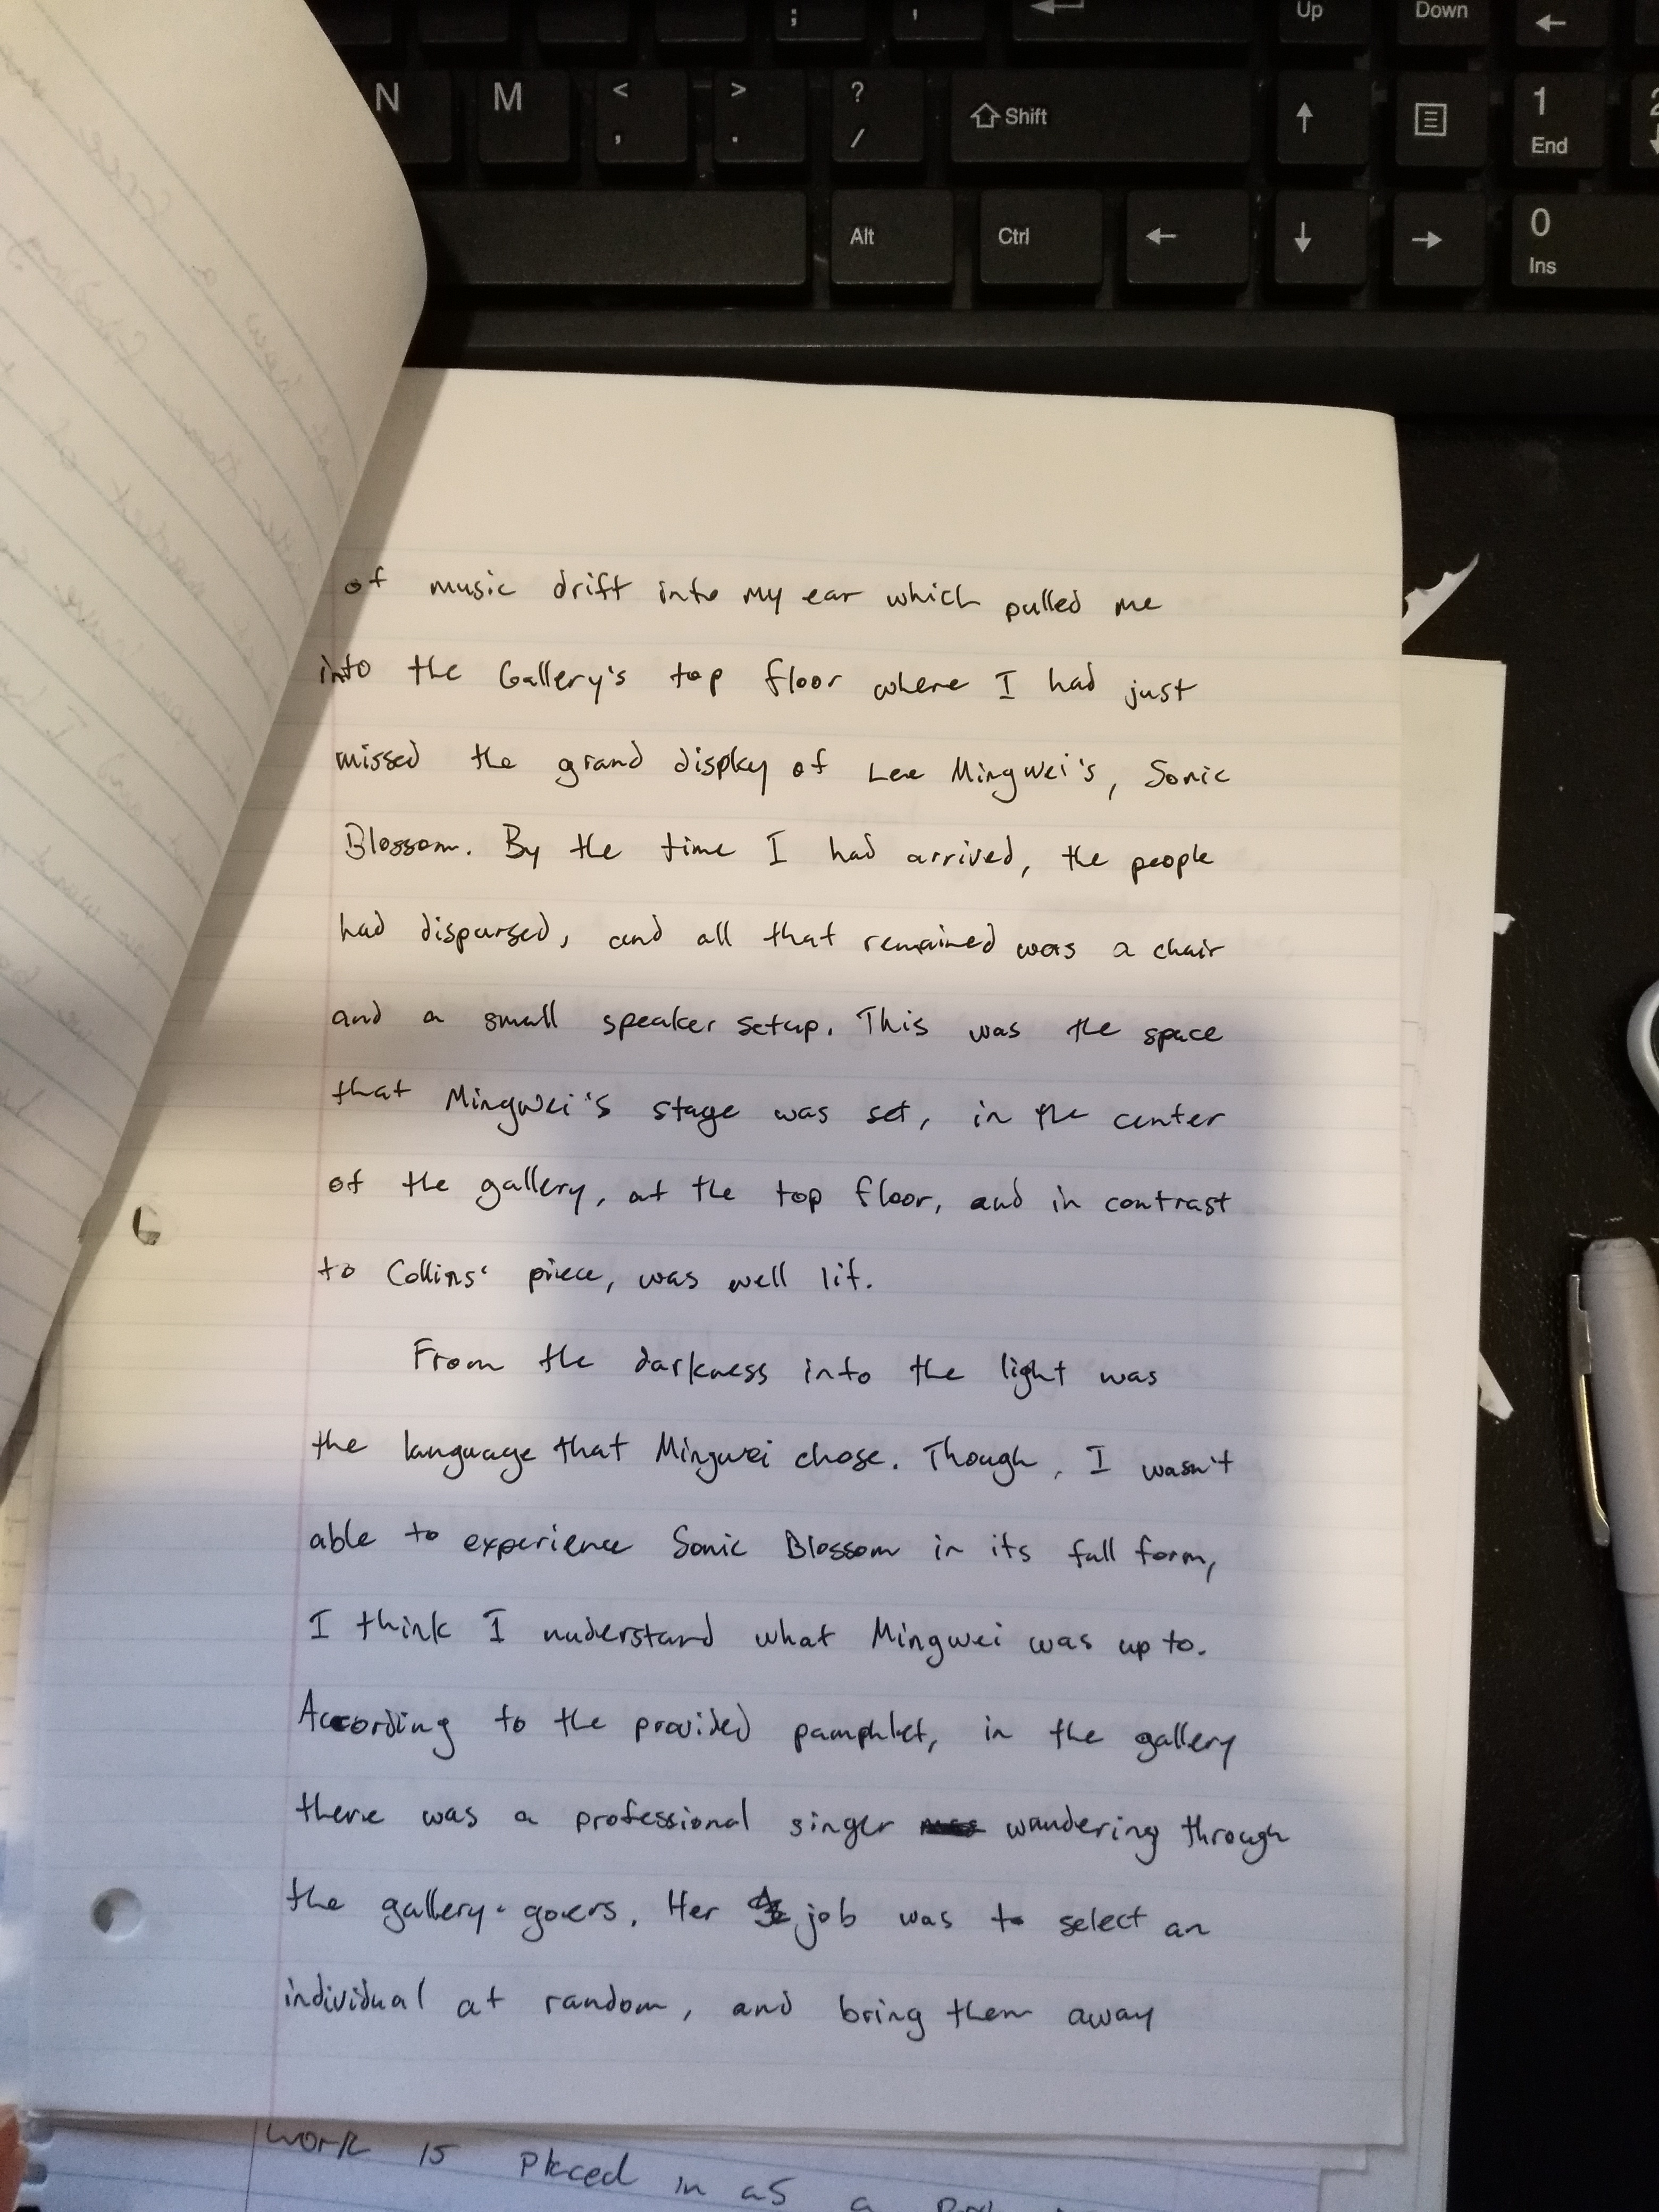 ; '
Up Down ←
N M < , > . ? / Shift ↑ 1 End 2
Alt Ctrl ← ↓ → 0 Ins
of music drift into my ear which pulled me
into the Gallery's top floor where I had just
missed the grand display of Lee Mingwei's, Sonic
Blossom. By the time I had arrived, the people
had dispursed, and all that remained was a chair
and a small speaker setup. This was the space
that Mingwei's stage was set, in the center
of the gallery, at the top floor, and in contrast
to Collins' piece, was well lit.
From the darkness into the light was
the language that Mingwei chose. Though, I wasn't
able to experience Sonic Blossom in its full form,
I think I understand what Mingwei was up to.
According to the provided pamphlet, in the gallery
there was a professional singer wandering through
the gallery-goers. Her job was to select an
individual at random, and bring them away
work is placed in as a